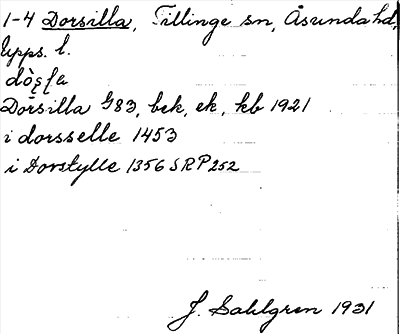 1-4 Dorsilla, Tillinge sn, Åsunda hd,
Upps. l.
Dorsilla G83, bek, ek, kb 1921
i dorsselle 1453
i Dorstylle 1356 SRP 252
J. Sahlgren 1931